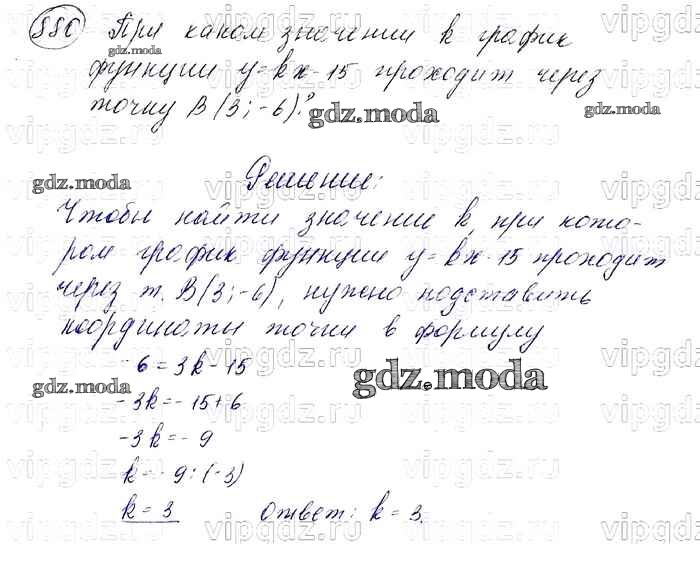 880 При каком значении k график
функции y=kx-15 проходит через
точку B(3;-6)?
Решение:
Чтобы найти значение k, при кото-
ром график функции y=kx-15 проходит
через т. B(3;-6), нужно подставить
координаты точки в формулу
-6=3k-15
-3k=-15+6
-3k=-9
k=-9:(-3)
k=3 Ответ: k=3.
gdz.moda
gdz.moda
gdz.moda
gdz.moda
gdz.moda
gdz.moda
gdz.moda
vipgdz.ru